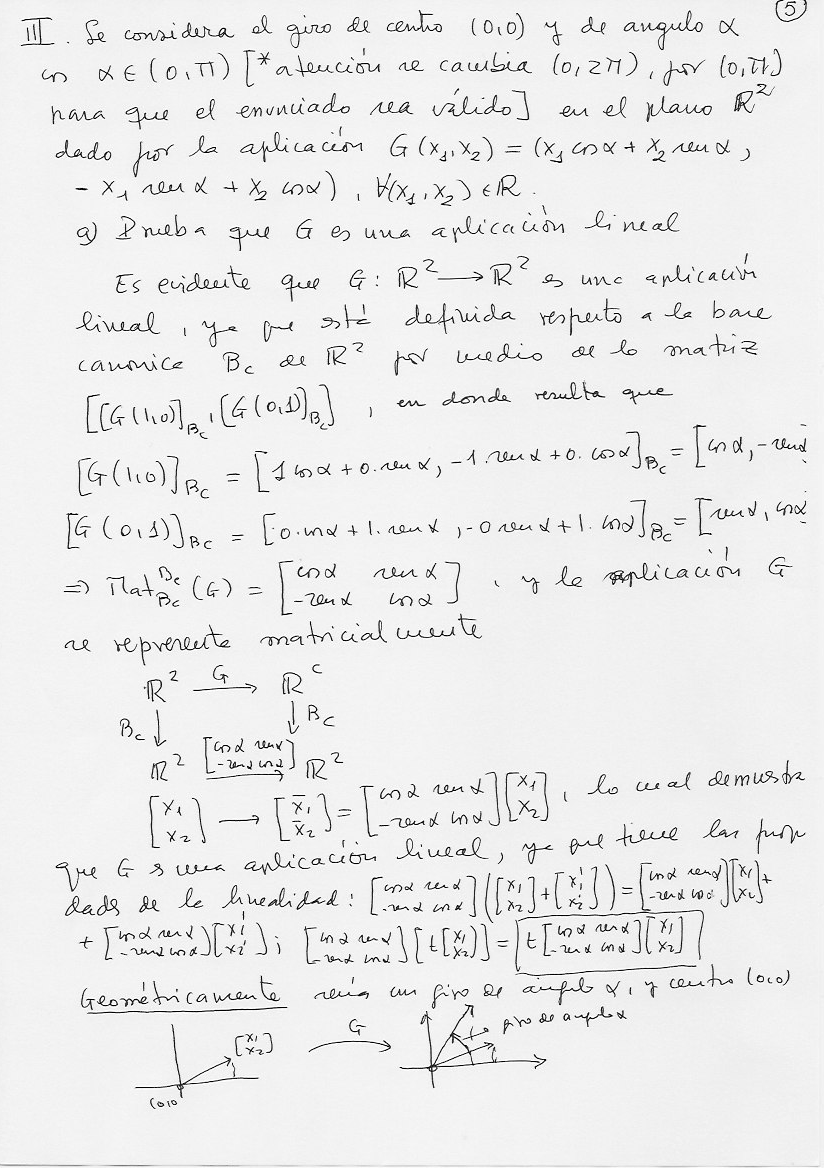 5
III. Se considera el giro de centro (0,0) y de angulo α
con α ∈ (0,π) [*atención se cambia (0,2π), por (0,π)
para que el enunciado sea válido] en el plano ℝ²
dado por la aplicación G(x₁,x₂) = (x₁ cosα + x₂ senα,
- x₁ senα + x₂ cosα), ∀(x₁,x₂) ∈ ℝ.
a) Prueba que G es una aplicación lineal
Es evidente que G: ℝ² → ℝ² es una aplicación
lineal, ya que está definida respecto a la base
canonica Bc de ℝ² por medio de la matriz
[[G(1,0)]Bc, [G(0,1)]Bc], en donde resulta que
[G(1,0)]Bc = [1 cosα + 0. senα, -1. senα + 0. cosα]Bc = [cosα, -senα
[G(0,1)]Bc = [0. cosα + 1. senα, -0 senα + 1. cosα]Bc = [senα, cosα
⇒ Mat Bc Bc (G) = [cosα senα; -senα cosα], y la aplicación G
se representa matricialmente
ℝ² G → ℝ^c
Bc ↓ ↓ Bc
ℝ² [cosα senα; -senα cosα] → ℝ²
[x₁; x₂] → [x̄₁; x̄₂] = [cosα senα; -senα cosα][x₁; x₂], lo cual demuestra
que G es una aplicación lineal, ya que tiene las prop
dades de la linealidad: [cosα senα; -senα cosα]([x₁; x₂] + [x₁'; x₂']) = [cosα senα; -senα cosα][x₁; x₂] +
+ [cosα senα; -senα cosα][x₁'; x₂']; [cosα senα; -senα cosα][t[x₁; x₂]] = t[cosα senα; -senα cosα][x₁; x₂]
Geométricamente sería un giro de ángulo α, y centro (0,0)
[x₁; x₂] G giro de angulo α
(0,0